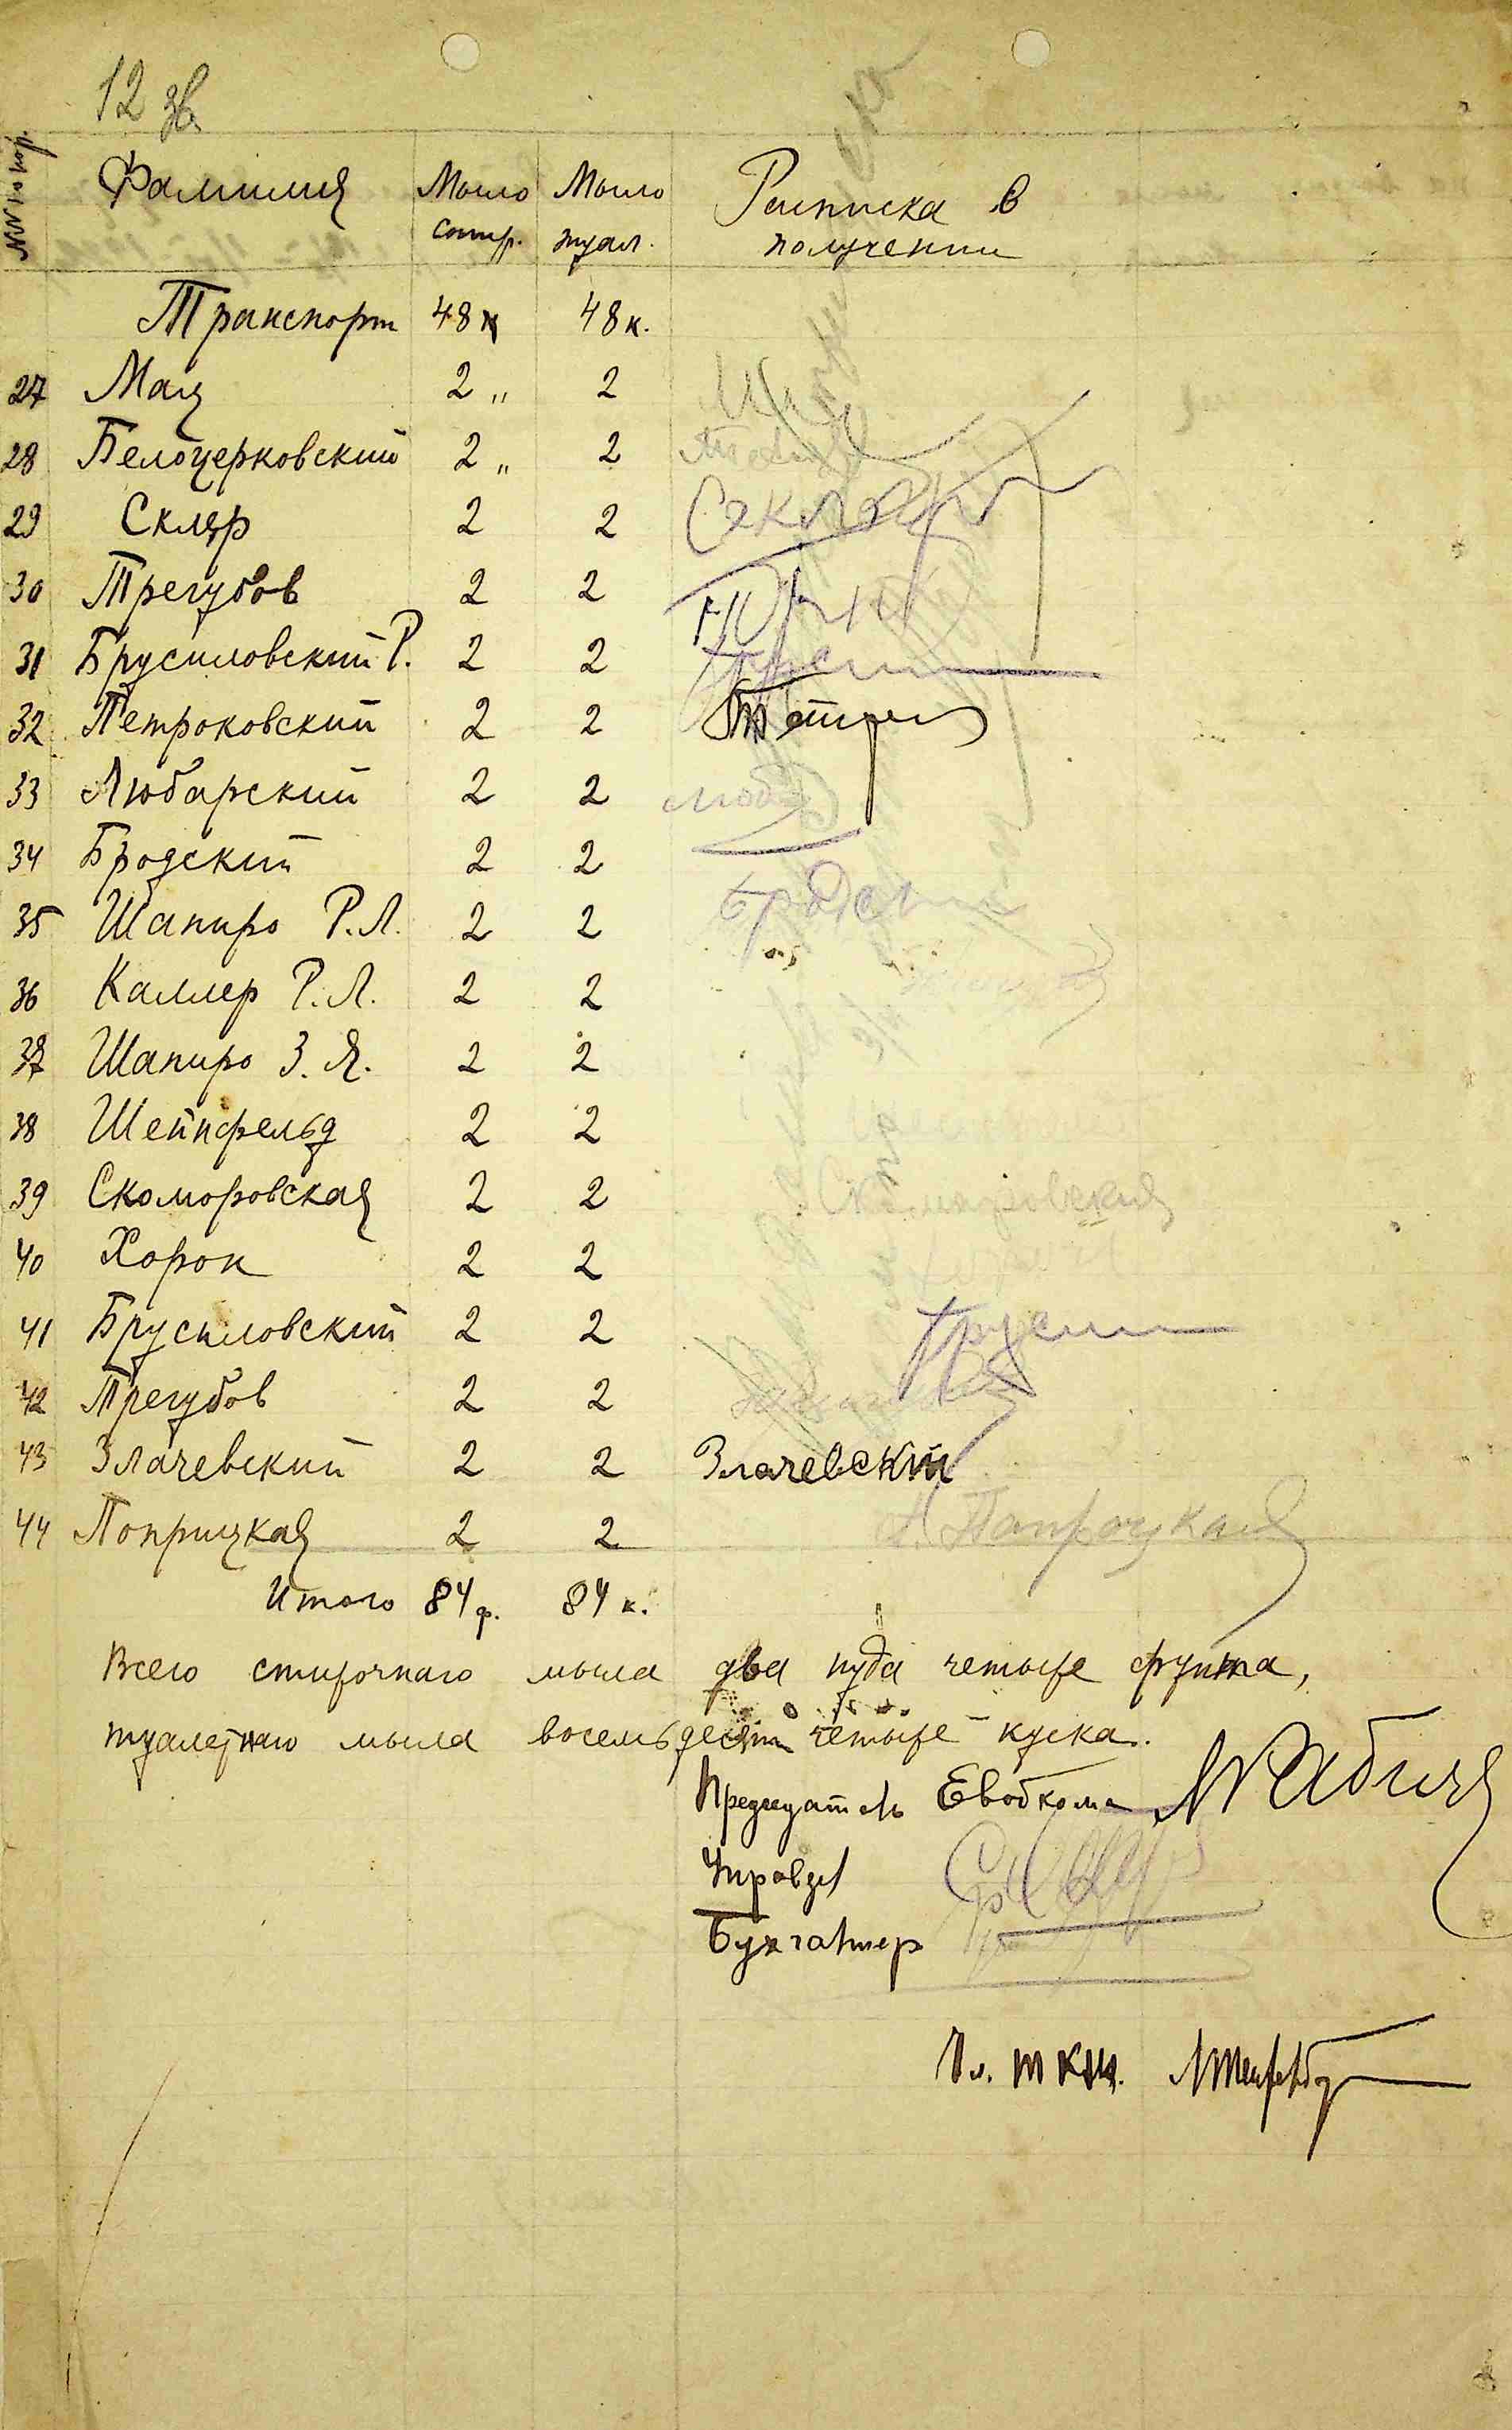 12 зв.
NN по пор. Фамилия Мыло стир. Мыло туал. Расписка в получении
Транспорт 48 к 48 к.
27 Мац 2 " 2
28 Белоцерковский 2 " 2
29 Скляр 2 2
30 Трегубов 2 2
31 Брусиловский Р. 2 2
32 Петроковский 2 2
33 Любарский 2 2
34 Бродский 2 2
35 Шапиро Р.Л. 2 2
36 Каллер Р.Л. 2 2
37 Шапиро З.Я. 2 2
38 Шейнфельд 2 2
39 Скоморовская 2 2 Скоморовская
40 Хорон 2 2
41 Брусиловский 2 2
42 Трегубов 2 2
43 Злачевский 2 2 Злачевский
44 Поприцкая 2 2 Попроцкая
Итого 84 ф. 84 к.
Всего стирочнаго мыла два пуда четыре фунта,
туалетнаго мыла восемьдесят четыре куска.
Председатель Евобкома
Управдел
Бухгалтер